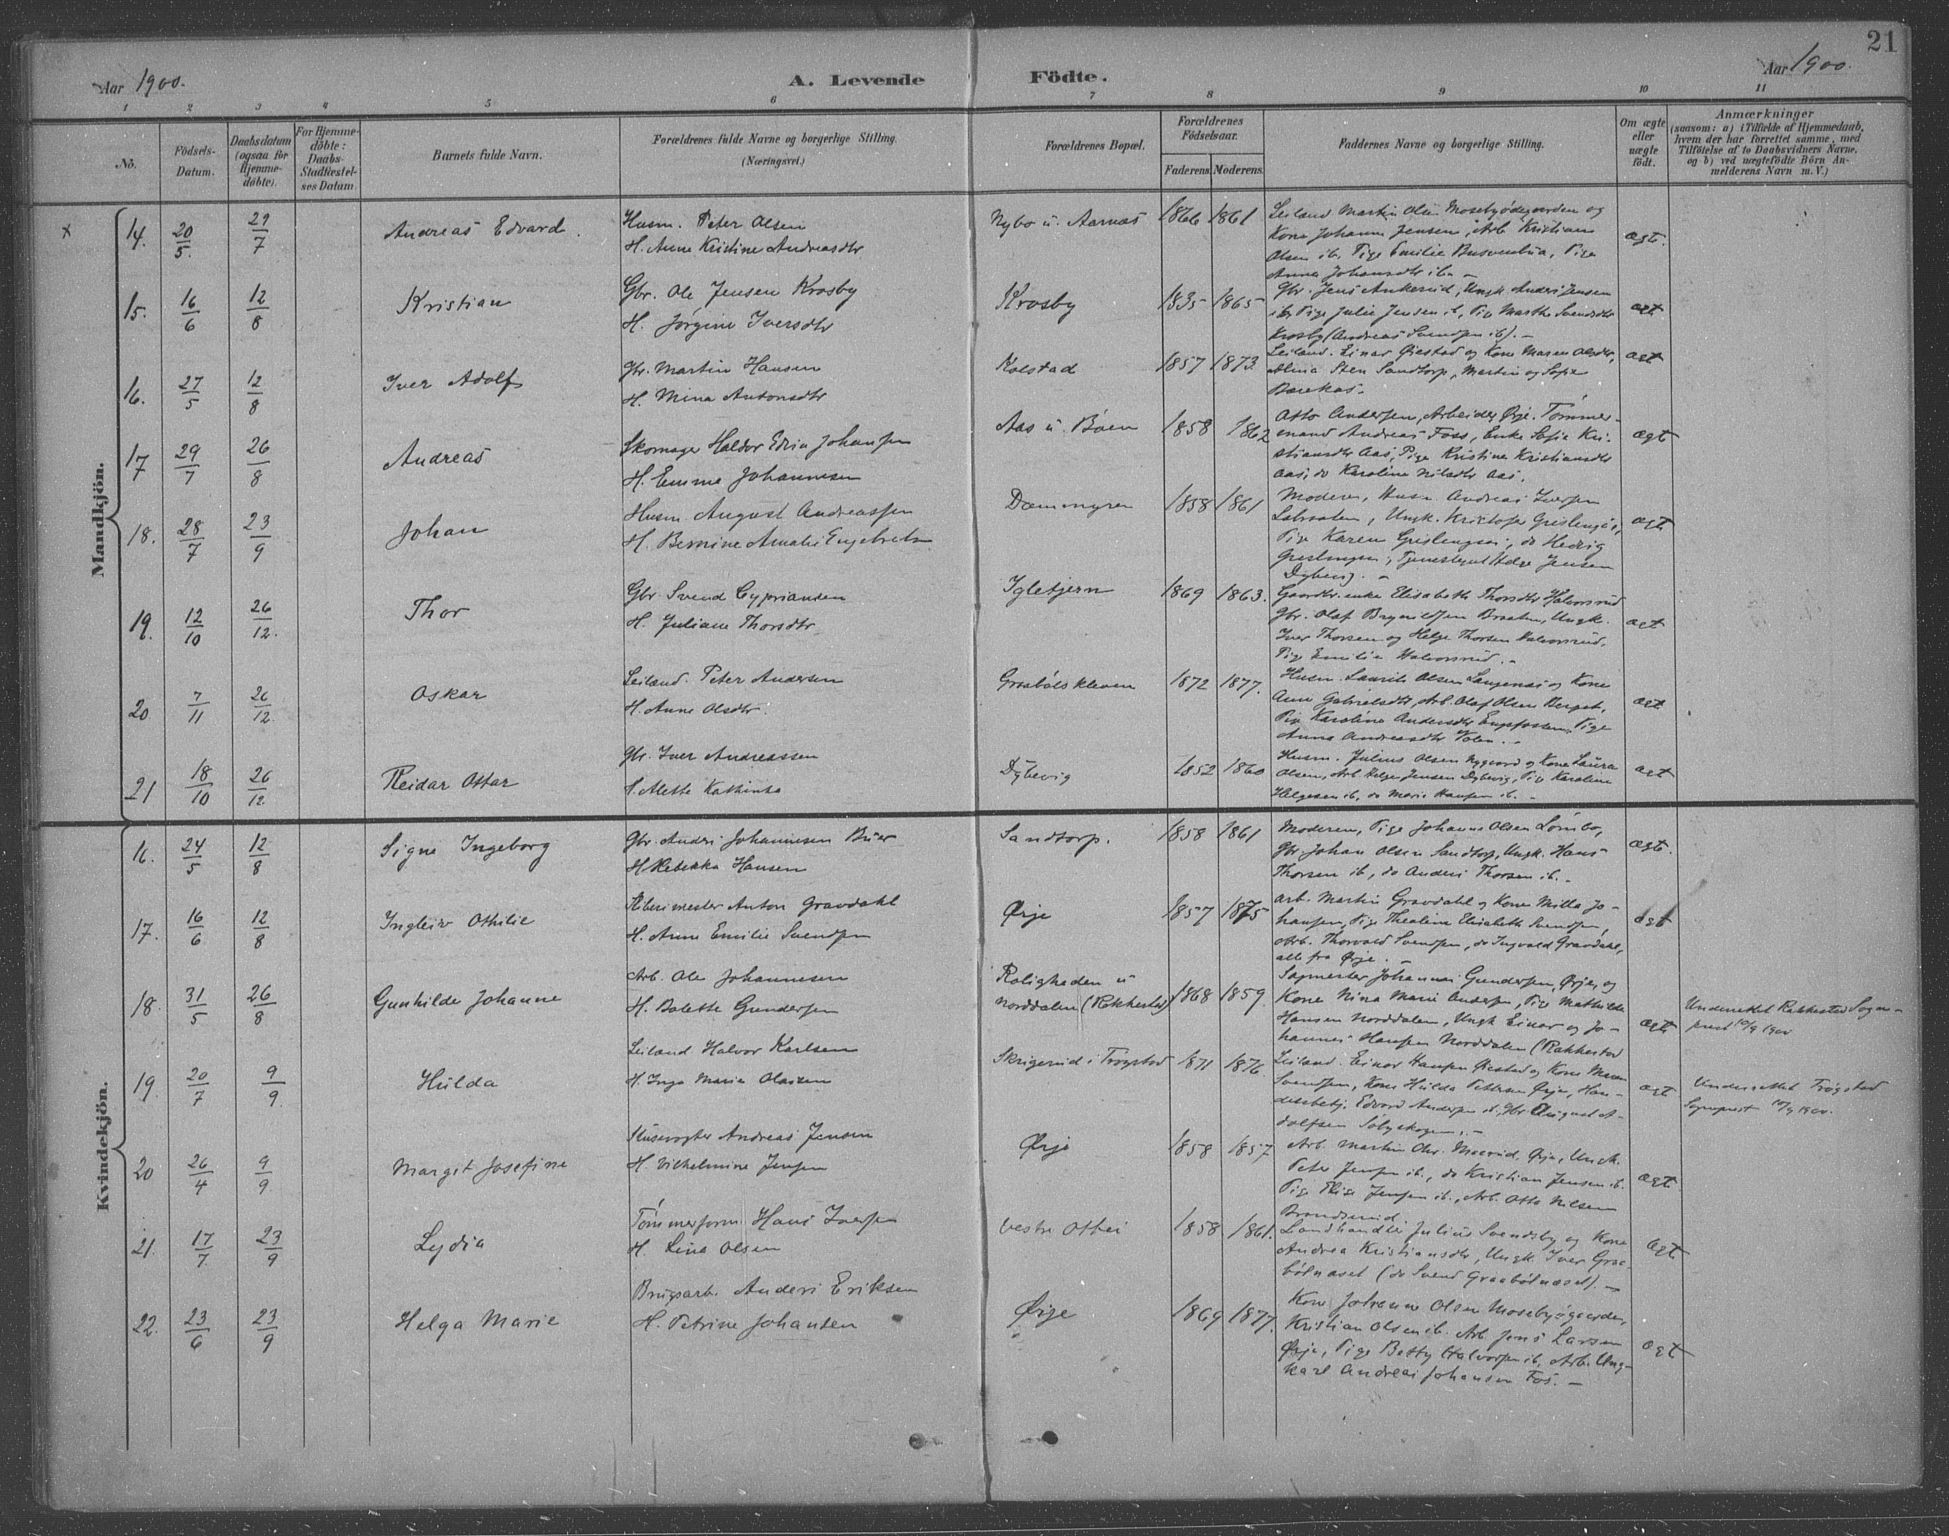 21
Aar 1900.
A. Levende Födte.
Aar 1900.
1 2 3 4 5 6 7 8 9 10 11
No.
Födsels-Datum.
Daabsdatum (ogsaa for Hjemme-döbte).
For Hjemme-döbte: Daabs-Stadfæstel-ses Datum.
Barnets fulde Navn.
Forældrenes fulde Navne og borgerlige Stilling.
(Næringsvei.)
Forældrenes Bopæl.
Forældrenes Födselsaar.
Faderens. Moderens.
Faddernes Navne og borgerlige Stilling.
Om ægte eller uægte födt.
Anmærkninger
(saasom: a) i Tilfælde af Hjemmedaab, hvem der har forrettet samme, med Tilföielse af to Daabsvidners Navne, og b) ved uægtefödte Börn An-melderens Navn m. V.)
Mandkjön.
x 14. 20/5. 29/7 Andreas Edvard.
Husm. Peter Olsen
H. Anne Kristine Andreasdtr
Nybo u. Aarnæs 1866 1861
Leiland Martin Olsen Mosebyødegaarden og
Kone Johanne Jensen, Arb. Kristian
Olsen ib. Pige Emilie , Pige
Anna Johansdtr ib. –
ægt.
15. 16/6 12/8 Kristian
Gbr. Ole Jensen Krosby
H. Jørgine Iversdtr
Krosby 1835 1865
Gbr. Jens Ankerud, Ungk. Anders Jensen
ib, Pige Julie Jensen ib, Pige Marthe Svendsdtr
Krosby (Andreas Svendsen ib). –
ægt
16. 27/5 12/8 Iver Adolf
Gbr. Martin Hansen
H. Mina Antonsdtr
Kolstad 1857 1873.
Leiland. Einar Øiestad og Kone Maren Olsdtr,
Alina Sten Sandtorp, Martin og Sofie
ægt
17 29/7 26/8 Andreas
Skomager Haldor Edvin Johansen
H. Emma Johannesen
Aas u. Bøen 1858 1862
Otto Andersen, Arbeider Ørje. Tømmer-
mand Andreas Foss, Enke Sofie Kri-
stiansdtr Aas, Pige Kristine Kristiansdtr
Aas, do Karoline Nilsdtr Aas.
ægt
18. 28/7 23/9 Johan
Husm August Andreassen
H. Bernine Amalie Engebrets.
Dammyren 1858 1861
Moderen, Husm. Andreas Iversen
, Ungk. Kristofer Gresleng,
Pige Karen , do Hedvig
, Helge Jensen
Dybevig. –
ægt
19. 12/10 26/12. Thor
Gbr. Svend Cypriansen
H. Juliane Thorsdtr
Igletjern 1869 1863.
Gaardbr.enke Elisabeth Thorsdtr Halvorsrud
Gbr. Olaf Brynildsen Braaten, Ungk.
Iver Thorsen og Helge Thorsen Halvorsrud.
Pige Emilie Halvorsrud. –
ægt
20 7/11 26/12. Oskar
Leilænd. Peter Andersen
H. Anne Olsdtr.
Graabølskleven 1872 1877.
Husm. Laurits Olsen Langenæs og Kone
Anne Gabrielsdtr, Arb. Olaf Olsen Berget,
Pige Karoline Andersdtr , Pige
Anna Andreasdtr . –
ægt
21 18/10 26/12. Reidar Ottar
Gbr. Iver Andreassen
H. Alette Kathinka
Dybevig 1852 1860
Husm. Julius Olsen Nygaard og Kone Laura
Olsen, Arb. Helge Jensen Dybevig, Pige Karoline
Helgesen ib, do Marie Hansen ib. –
ægt
Kvindekjön.
16. 24/5 12/8 Signe Ingeborg
Gbr. Anders Johannesen Buer
H. Rebekka Hansen
Sandtorp. 1858 1861
Moderen, Pige Johanne Olsen Lømbo,
Gbr. Johan Olsen Sandtorp, Ungk. Hans
Thorsen ib, do Anders Thorsen ib. –
ægt.
17. 16/6 12/8 Ingleiv Othilie
Anton Gravdahl
H. Anne Emilie Svendsen
Ørje 1857 1875
Arb. Martin Gravdahl og Kone Milla Jo-
hansen, Pige Thealine Elisabeth Svendsen,
Arb. Thorvald Svendsen, do Ingvald Gravdahl,
alle fra Ørje. –
ægt
18. 31/5 26/8 Gunhilde Johanne
Arb. Ole Johannesen
H. Bolette Gundersen
Roligheden u
Norddalen (Rakkestad) 1868 1859.
Sagmester Johannes Gundersen, Ørje, og
Kone Nina Marie Andersen, Pige Mathilde
Hansen Norddalen, Ungk Einar og Jo-
hannes Hansen Norddalen (Rakkestad
ægt
Underrettet Rakkestad Sogne-
prest 10/9 1900
19. 20/7 9/9 Hulda
Leilænd Halvor Karlsen
H. Inga Marie Olausen
Skrigerud i Trøgstad 1871 1876.
Leiland. Einar Hansen Øiestad og Kone Maren
Svendsen, Kone Hulda Pettersen Ørje, Han-
delsbetj. Edvard Andersen ib. Gbr. August A-
dolfsen Søbyskogen. –
ægt
Underrettet Trøgstad
Sognprest 10/9 1900.
20 26/4 9/9 Margit Josefine
Slusevogter Andreas Jensen
H. Vilhelmine Jensen
Ørje 1858 1857
Arb. Martin Chr. , Ørje, Ungk.
Peter Jensen ib., do Kristian Jensen ib.
Pige Elise Jensen ib., Arb. Otto Nilsen
ægt
21. 17/7 23/9 Lydia
Tømmerform. Hans Iversen
H. Lina Olsen
Vestre Otteid 1858 1861.
Landhandler Julius Svendsby og Kone
Andrea Kristiansdtr, Ungk. Iver Graa-
bølnæset (do Svend Graabølnæset). –
ægt
22. 23/6 23/9 Helga Marie
Brugsarb. Anders Eriksen
H. Petrine Johansen
Ørje 1869 1877.
Kone Johanne Olsen Mosebyøgaarden,
Kristian Olsen ib. Arb. Jens Larsen
Ørje, Pige Betty Halvorsen ib. Arb. Ung-
karl Andreas Johansen Fos. –
ægt